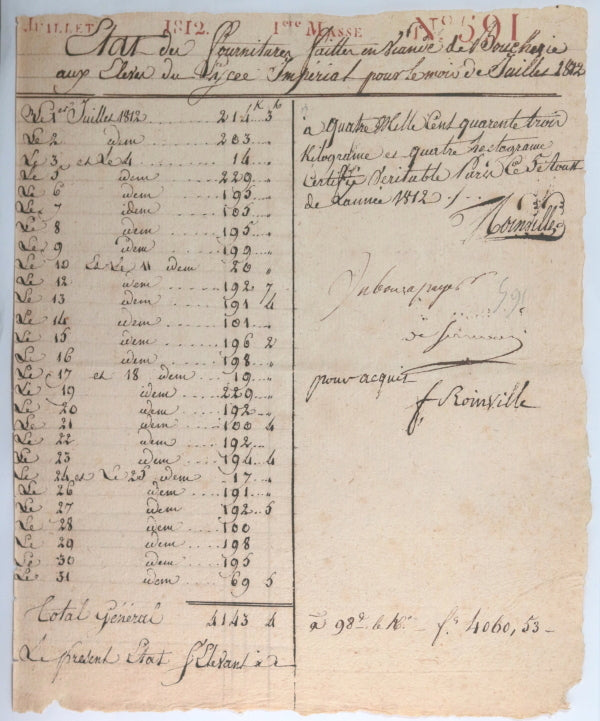 JUILLET 1812. 1ère MASSE No. 591
Etat des Fournitures faittes en Viande de Boucherie
aux Eleves du Lycée Impérial pour le mois de Juillet 1812
K h
Le 1er Juillet 1812 ..... 214 3
Le 2 idem ..... 203 "
Le 3 et Le 4 ..... 14 "
Le 5 idem ..... 229 "
Le 6 idem ..... 195 "
Le 7 idem ..... 105 "
Le 8 idem ..... 195 "
Le 9 idem ..... 199 "
Le 10 et Le 11 idem 20 "
Le 12 idem ..... 192 7
Le 13 idem ..... 191 4
Le 14 idem ..... 101 "
Le 15 idem ..... 196 2
Le 16 idem ..... 198 "
Le 17 et 18 idem ..... 19 "
Le 19 idem ..... 229 "
Le 20 idem ..... 192 "
Le 21 idem ..... 100 4
Le 22 idem ..... 192
Le 23 idem ..... 194 4
Le 24 et Le 25 idem ..... 17 "
Le 26 idem ..... 191 "
Le 27 idem ..... 192 5
Le 28 idem ..... 100
Le 29 idem ..... 198
Le 30 idem ..... 195
Le 31 idem ..... 69 5
Total Général 4143 4
Le présent Etat S'Elevant à
à quatre Mille Cent quarente trois
Kilograime et quatre hectograime
Certifie Veritable Paris Ce 5 Aoutt
de Lannée 1812 ./.
Roinville
591
pour acquit
f Roinville
à 98c. le Ko. — f. 4060,53 —